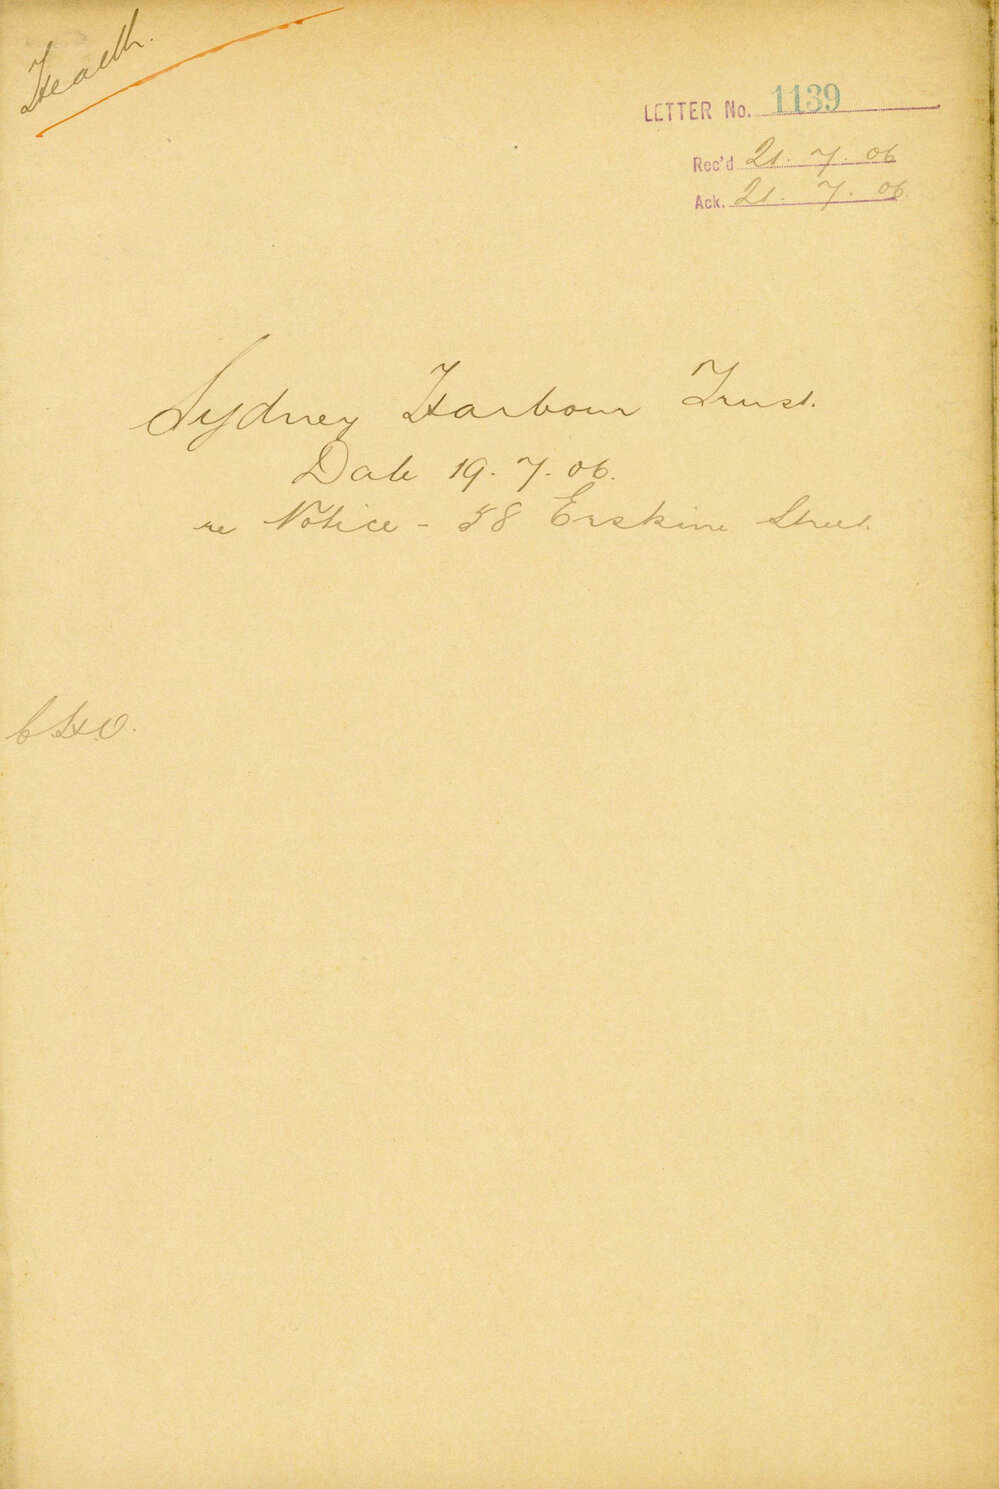 Health.
LETTER No. 1139
Rec'd 21. 7. 06
Ack. 21. 7. 06.
Sydney Harbour Trust.
Date 19. 7. 06.
re Notice - 58 Erskine Street.
CHO.